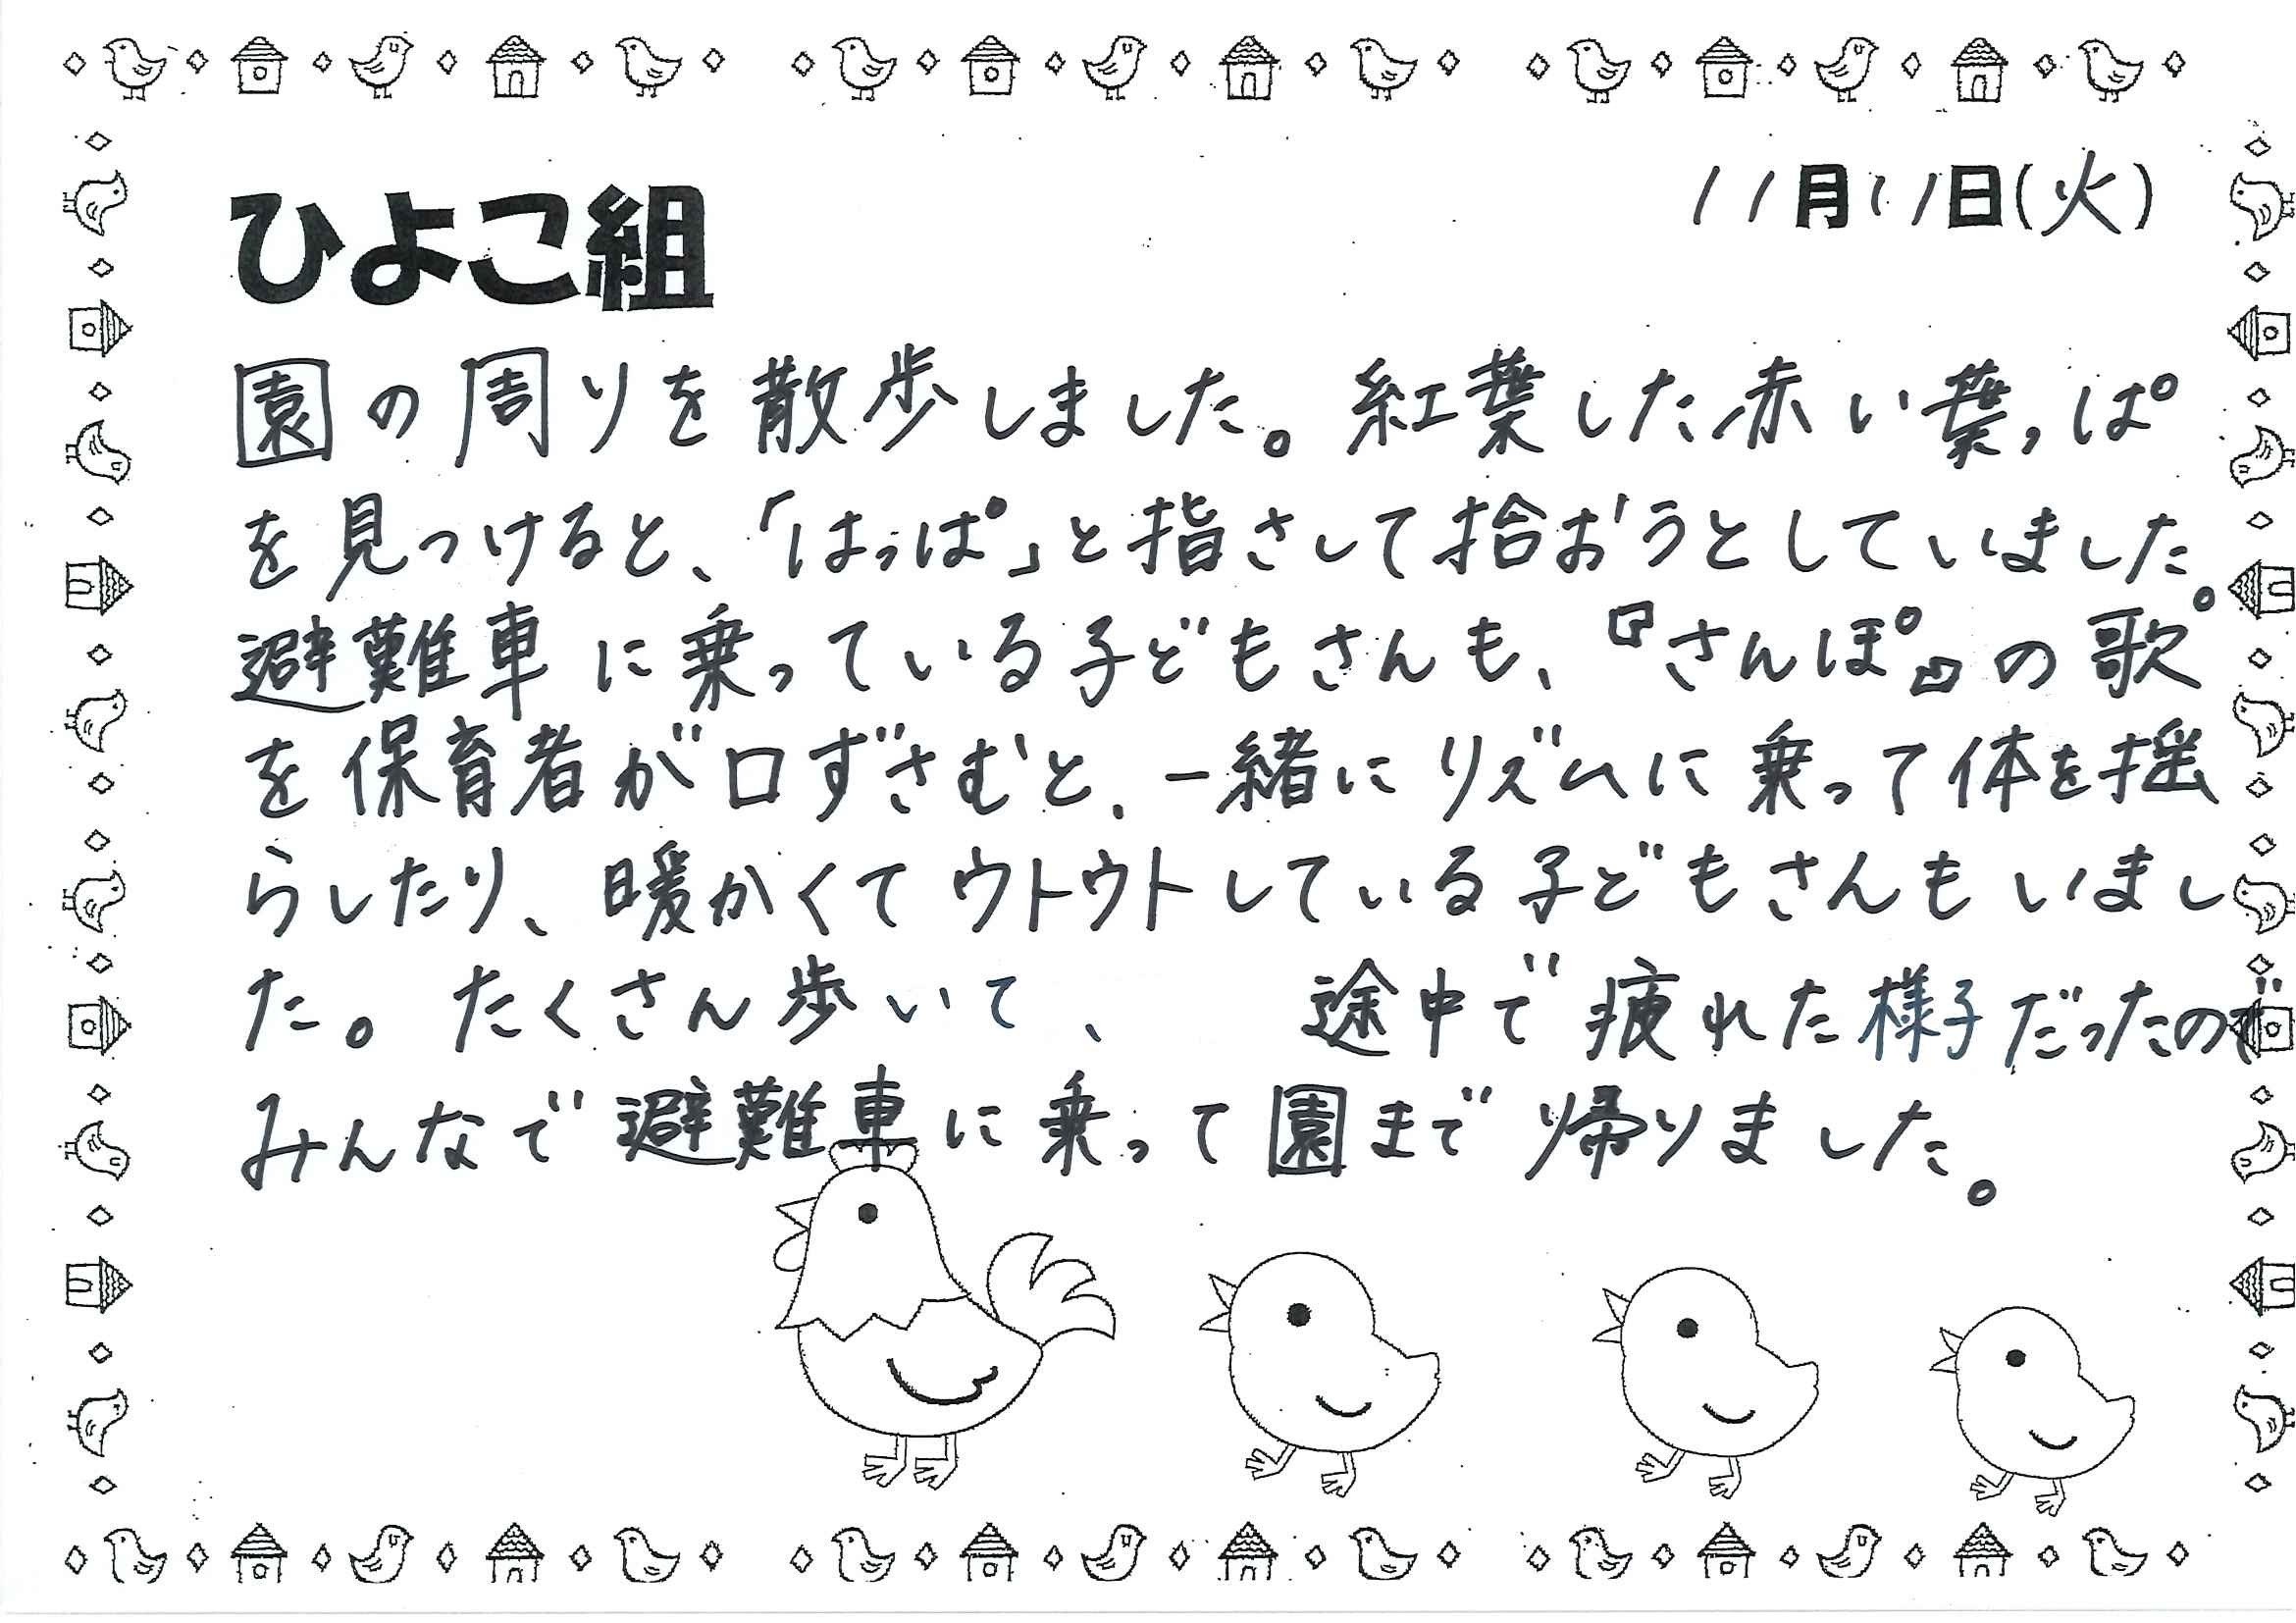 11月11日(火)
ひよこ組
園の周りを散歩しました。紅葉した赤い葉っぱ
を見つけると、「はっぱ」と指さして拾おうとしていました。
避難車に乗っている子どもさんも、『さんぽ』の歌
を保育者が口ずさむと、一緒にリズムに乗って体を揺
らしたり、暖かくてウトウトしている子どもさんもいまし
た。たくさん歩いて、途中で疲れた様子だったので
みんなで避難車に乗って園まで帰りました。